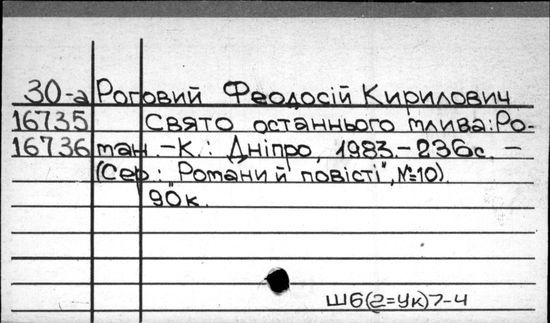 30-а Роговий Феодосій Кирилович
16735 Свято останнього млива: Ро-
16736 ман. – К.: Дніпро, 1983. – 236с. –
(Сер.: "Романи й повісті", №10).
90к.
Ш6(2=Ук)7-4